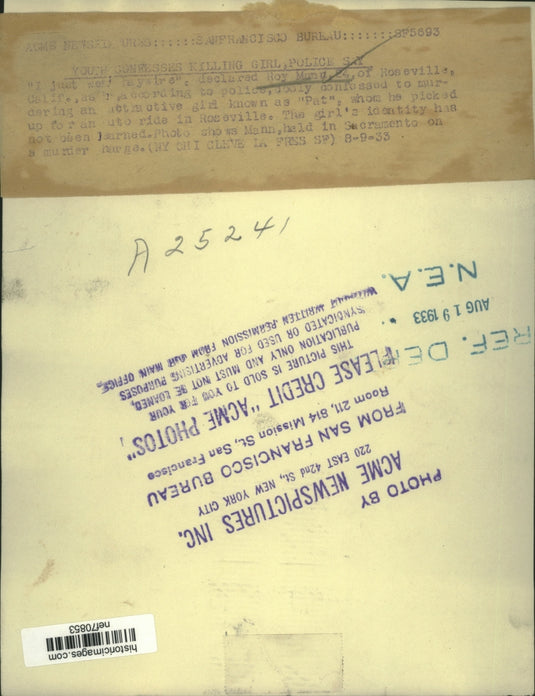 ACME NEWSPICTURES::::::SANFRANCISCO BUREAU:::::::SF5693
YOUTH CONFESSES KILLING GIRL, POLICE SAY
"I just went declared Roy Mann, of Roseville,
Calif., as according to police, confessed to mur-
dering an attractive girl known as "Pat", whom he picked
up for an auto ride in Roseville. The girl's identity has
not been learned. Photo shows Mann, held in Sacramento on
a murder charge. (NY CHI CLEVE LA FRES SF) 8-9-33
A25241
N.E.A.
AUG 19 1933
REF. DEPT
PHOTO BY
ACME NEWSPICTURES INC.
220 EAST 42nd St., NEW YORK CITY
FROM SAN FRANCISCO BUREAU
Room 211, 814 Mission St., San Francisco
PLEASE CREDIT "ACME PHOTOS"
THIS PICTURE IS SOLD TO YOU FOR YOUR
PUBLICATION ONLY AND MUST NOT BE LOANED,
SYNDICATED OR USED FOR ADVERTISING PURPOSES
WITHOUT WRITTEN PERMISSION FROM OUR MAIN OFFICE.
historicimages.com
nef70853